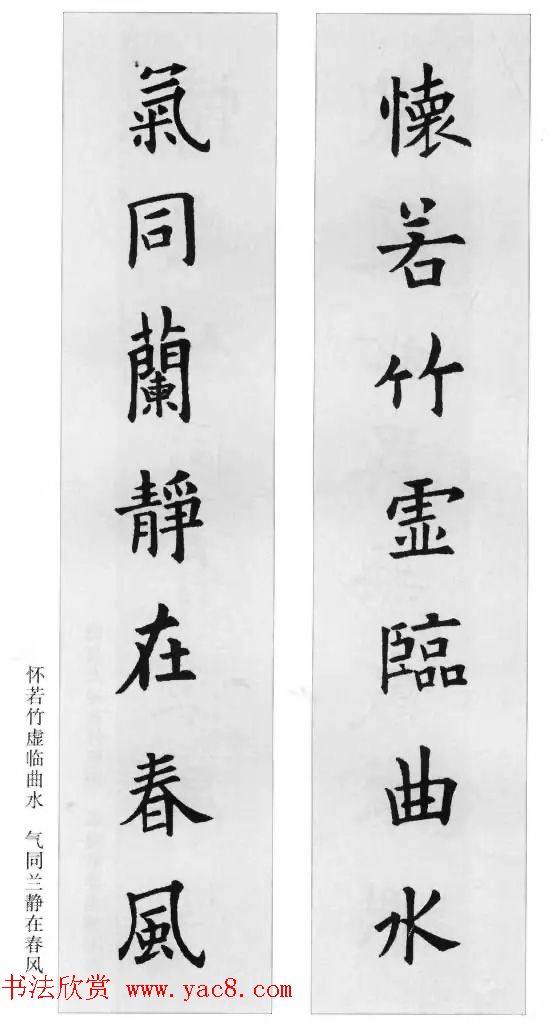 懷若竹虛臨曲水
氣同蘭靜在春風
怀若竹虚临曲水 气同兰静在春风
书法欣赏 www.yac8.com